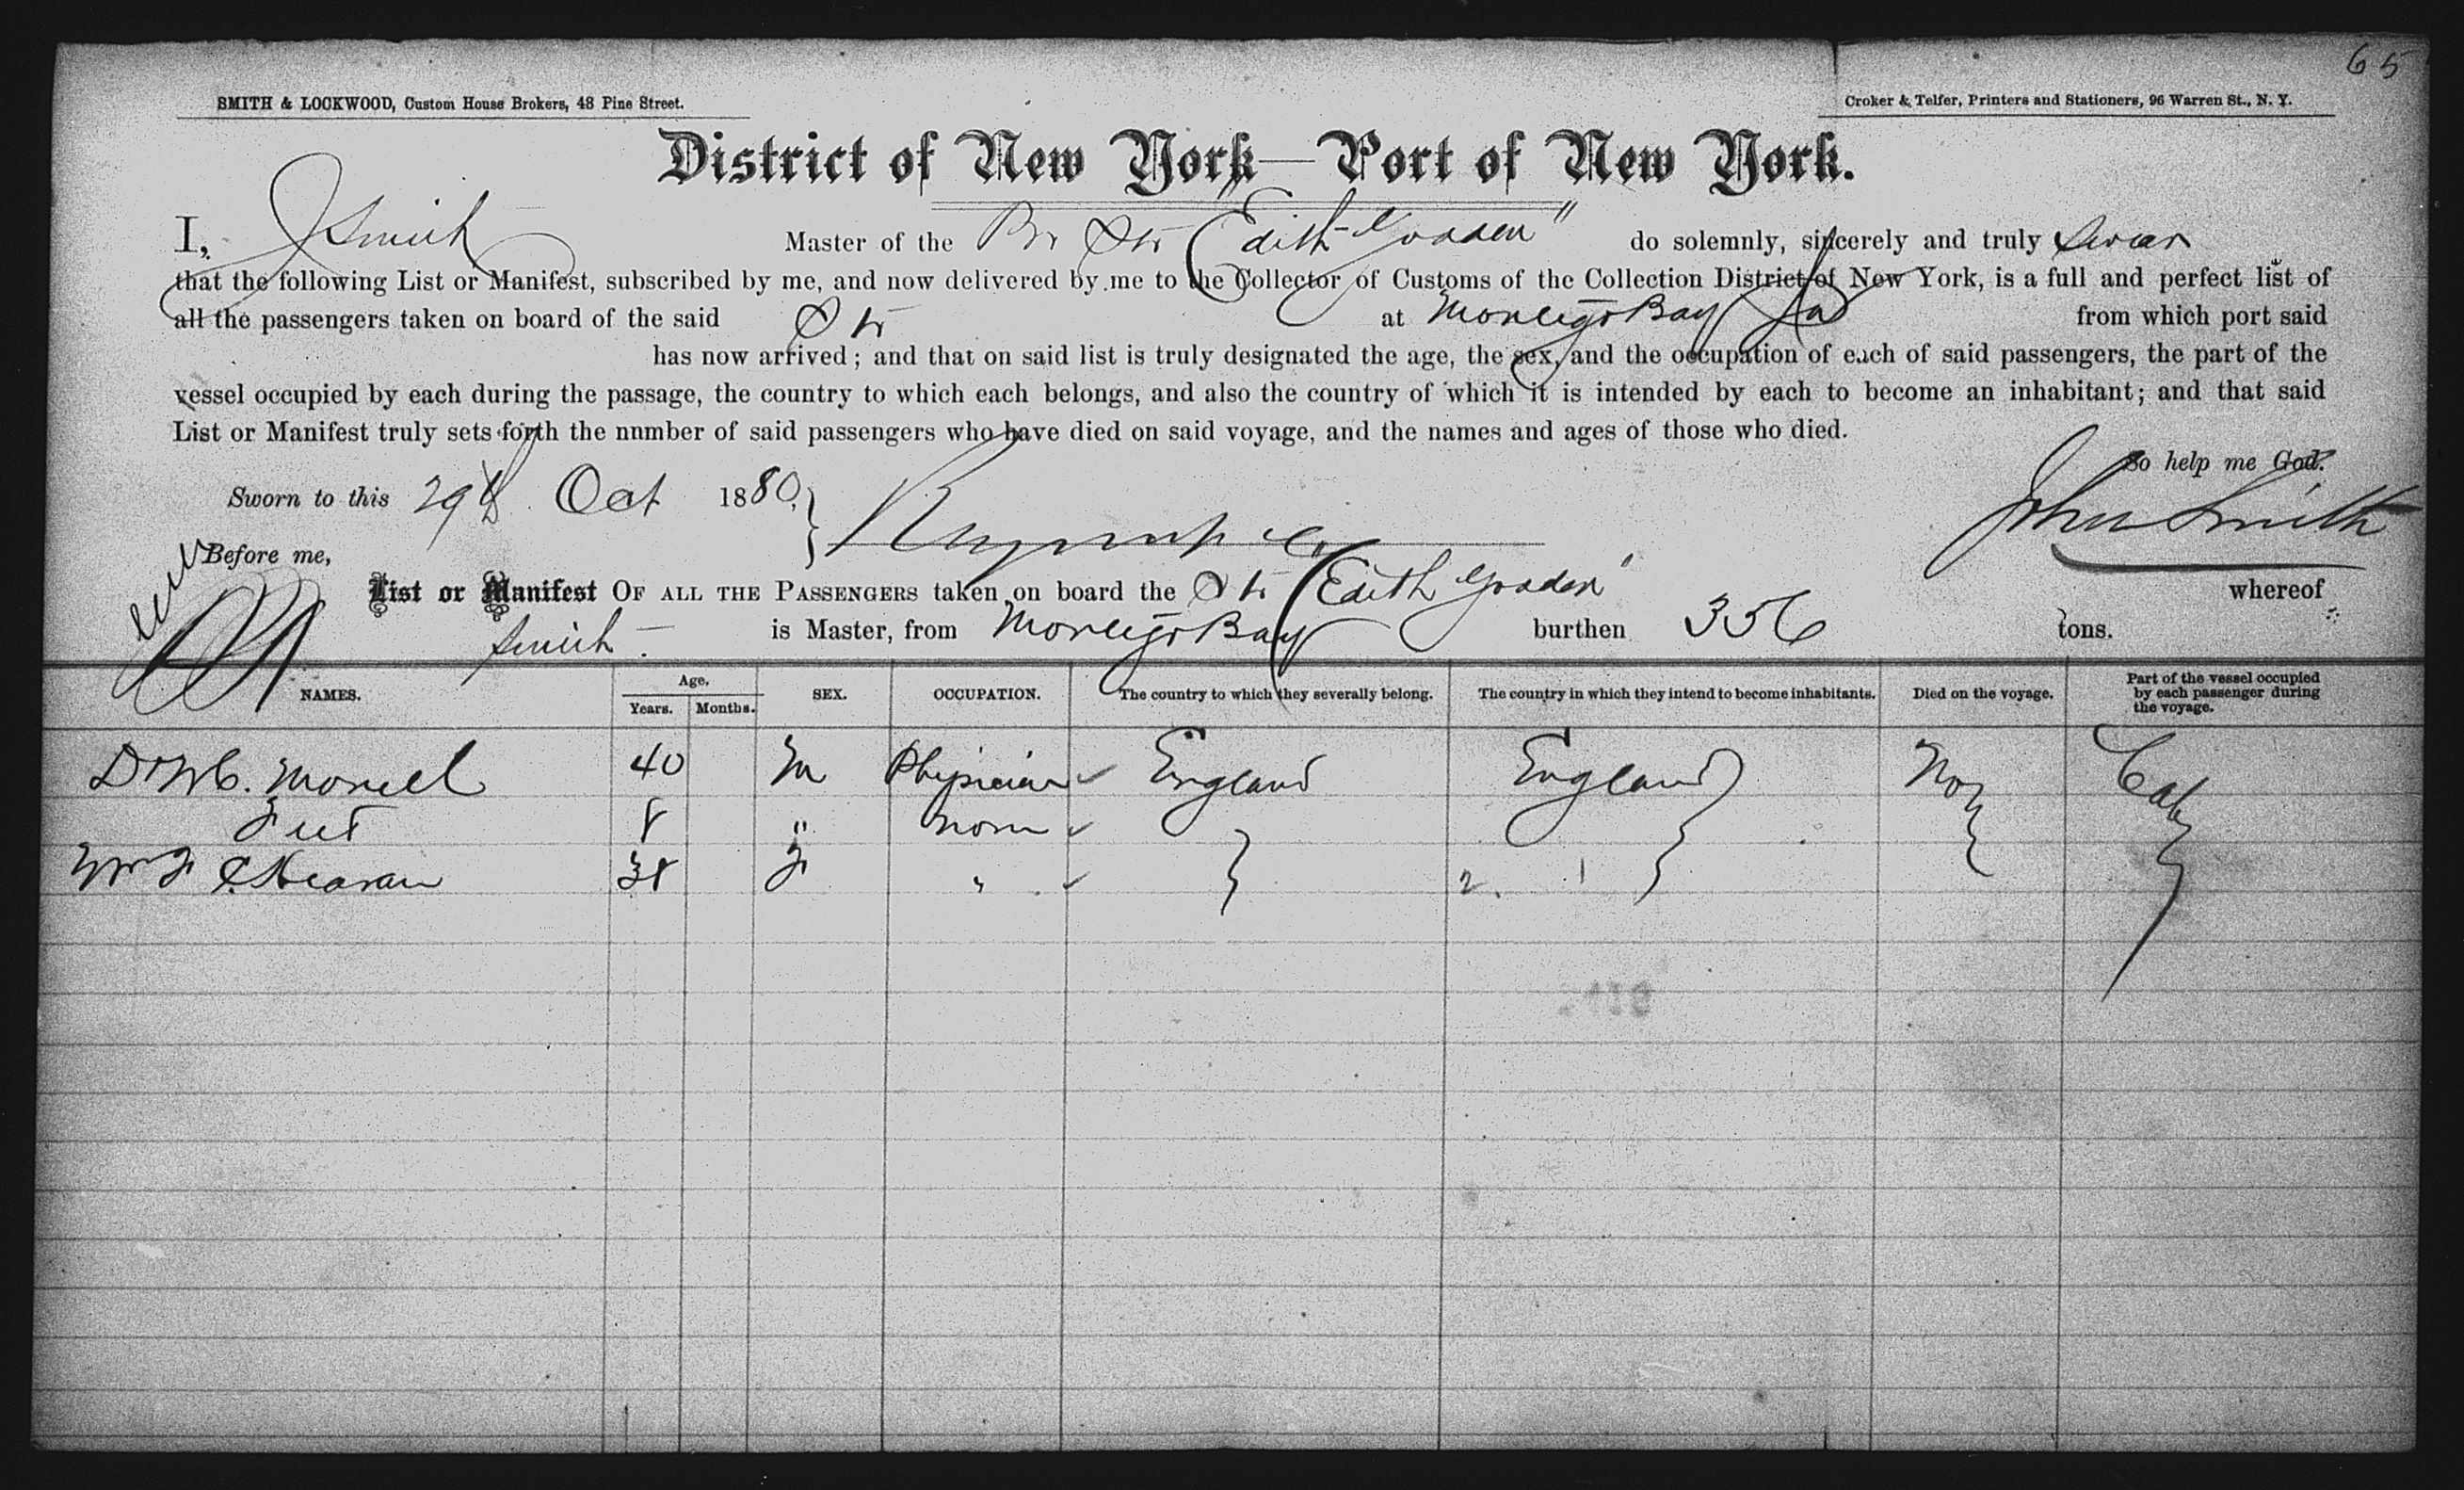 65
SMITH & LOCKWOOD, Custom House Brokers, 48 Pine Street.
Croker & Telfer, Printers and Stationers, 96 Warren St., N. Y.
District of New York—Port of New York.
I, J Smith Master of the Br Str "Edith Godden" do solemnly, sincerely and truly swear
that the following List or Manifest, subscribed by me, and now delivered by me to the Collector of Customs of the Collection District of New York, is a full and perfect list of
all the passengers taken on board of the said Str at Montego Bay Ja from which port said
has now arrived; and that on said list is truly designated the age, the sex, and the occupation of each of said passengers, the part of the
vessel occupied by each during the passage, the country to which each belongs, and also the country of which it is intended by each to become an inhabitant; and that said
List or Manifest truly sets forth the nnmber of said passengers who have died on said voyage, and the names and ages of those who died.
So help me God.
Sworn to this 29th Oct 1880.
John Smith
Before me,
List or Manifest OF ALL THE PASSENGERS taken on board the Str "Edith Godden" whereof
Smith is Master, from Montego Bay burthen 356 tons.
NAMES. Age. Years. Months. SEX. OCCUPATION. The country to which they severally belong. The country in which they intend to become inhabitants. Died on the voyage. Part of the vessel occupied by each passenger during the voyage.
40 M Physician England England No Cab
8 " None
38 F "